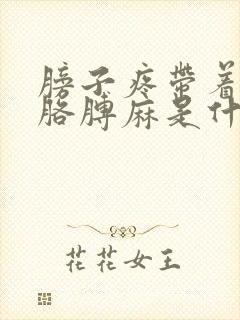 膀子疼带着
胳膊麻是什
花花女王